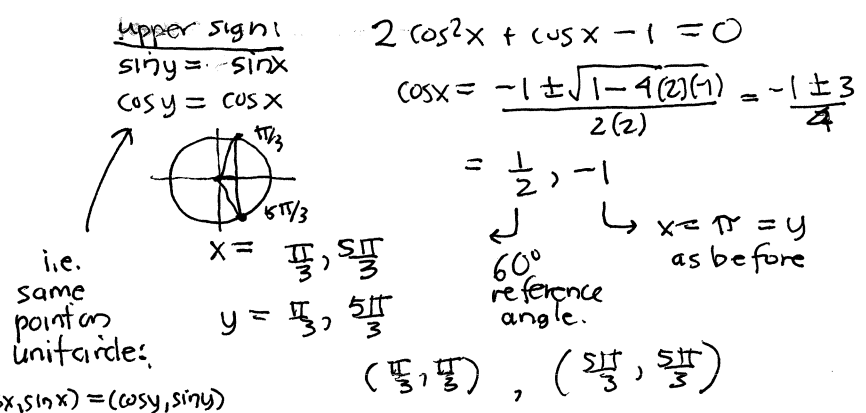 upper sign:
sin y = sin x
cos y = cos x
π/3
5π/3
i.e.
same
point on
unit circle:
(cos x, sin x) = (cos y, sin y)
x = π/3, 5π/3
y = π/3, 5π/3
2 cos²x + cos x − 1 = 0
cos x = (−1 ± √(1 − 4(2)(−1))) / 2(2) = (−1 ± 3) / 4
= 1/2, −1
60°
reference
angle.
x = π = y
as before
(π/3, π/3), (5π/3, 5π/3)